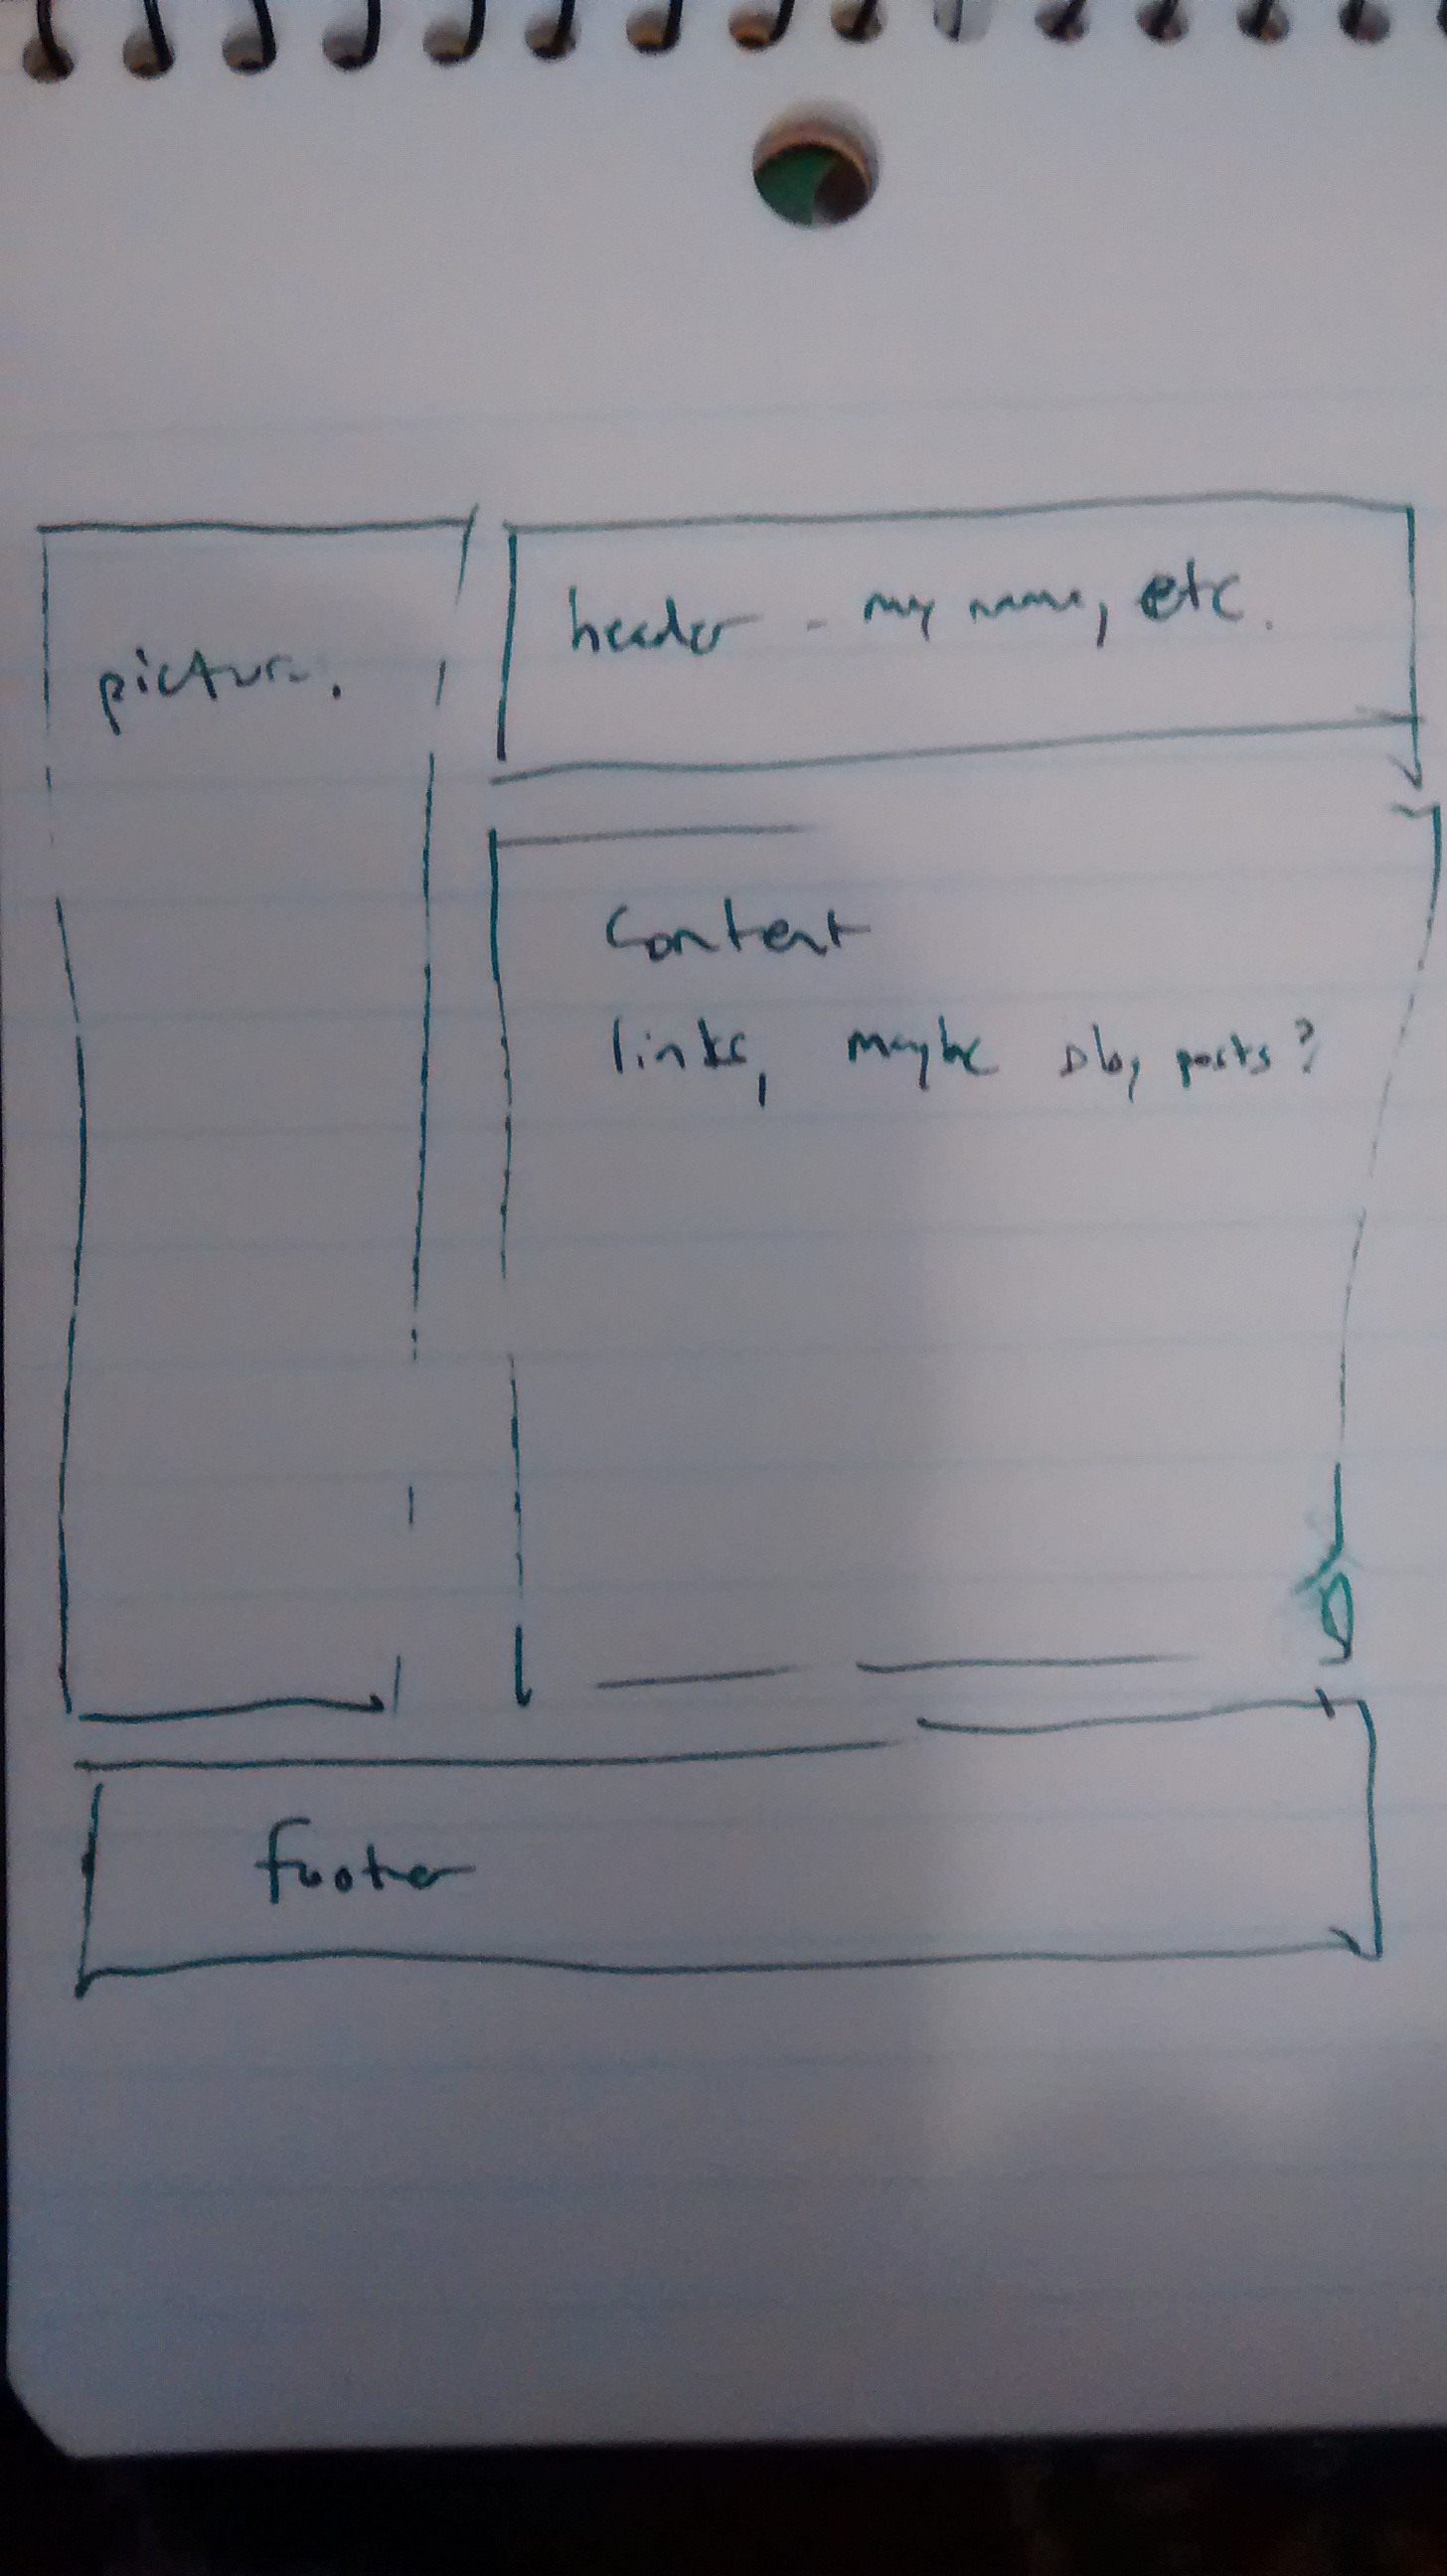 picture.
header - my name, etc.
Content
links, maybe blog posts?
footer